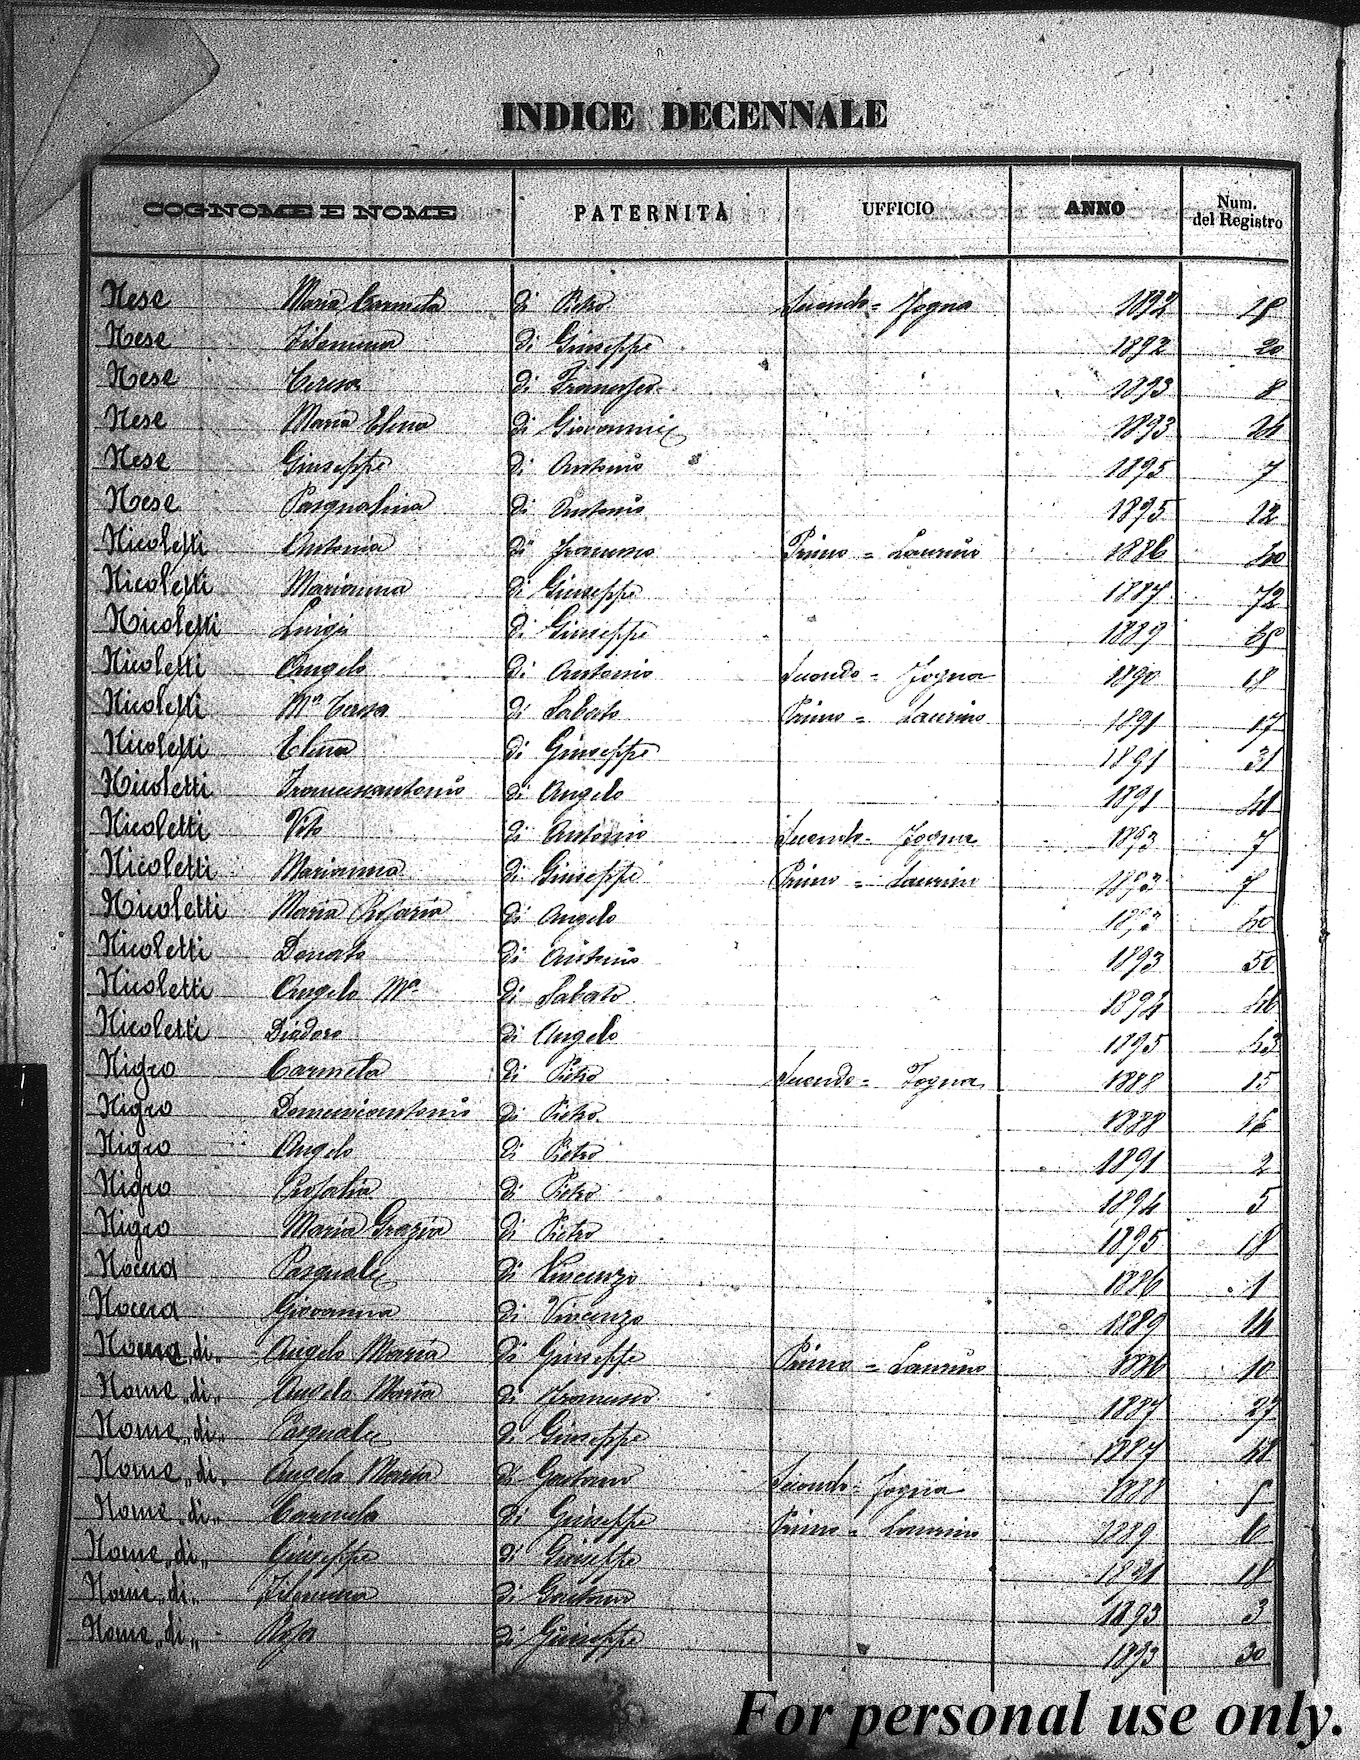 INDICE DECENNALE
COGNOME E NOME PATERNITÀ UFFICIO ANNO Num. del Registro
Nese Maria Carmela di Pietro Secondo = Fogna 1892 18
Nese Filomena di Giuseppe 1892 20
Nese Teresa di Francesco 1893 8
Nese Maria Elena di Giovanni 1893 24
Nese Giuseppe di Antonio 1895 7
Nese Pasqualina di Antonio 1895 12
Nicoletti Antonia di Francesco Primo = Laurino 1886 40
Nicoletti Marianna di Giuseppe 1887 72
Nicoletti Luigi di Giuseppe 1889
Nicoletti Angelo di Antonio Secondo = Fogna 1890 18
Nicoletti Mª Teresa di Sabato Primo = Laurino 1891 17
Nicoletti Elena di Giuseppe 1891 31
Nicoletti Francescantonio di Angelo 1891
Nicoletti Vito di Antonio Secondo = Fogna 1893 7
Nicoletti Marianna di Giuseppe Primo = Laurino 1893 7
Nicoletti Maria Rosaria di Angelo 1893 40
Nicoletti Donato di Antonio 1893 50
Nicoletti Angelo Mª di Sabato 1894 46
Nicoletti Diodoro di Angelo 1895 43
Nigro Carmela di Pietro Secondo = Fogna 1888 15
Nigro Domenicantonio di Pietro 1888 16
Nigro Angelo di Pietro 1891 2
Nigro Rosalia di Pietro 1894 5
Nigro Maria Grazia di Pietro 1895 18
Nocera Pasquale di Vincenzo 1886 1
Nocera Giovanna di Vincenzo 1889 14
Nome „di„ Angelo Maria di Giuseppe Primo = Laurino 1886 10
Nome „di„ Angelo Maria di Francesco 1887 27
Nome „di„ Pasquale di Giuseppe 1887 48
Nome „di„ Angela Maria di Gaetano Secondo = Fogna 1888
Nome „di„ Carmela di Giuseppe Primo = Laurino 1889
Nome „di„ Giuseppe di Giuseppe 1891 18
Nome „di„ Filomena di Gaetano 1893 3
Nome „di„ Rosa di Giuseppe 1893 30
For personal use only.